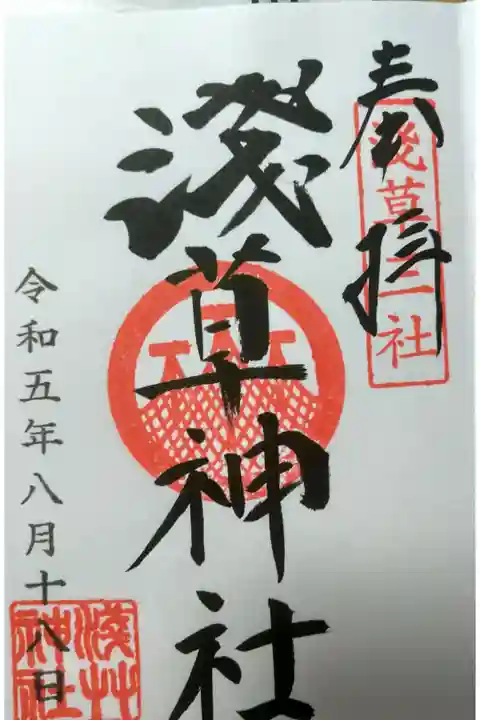 奉拝
浅草三社
淺草神社
令和五年八月十八日
淺草神社